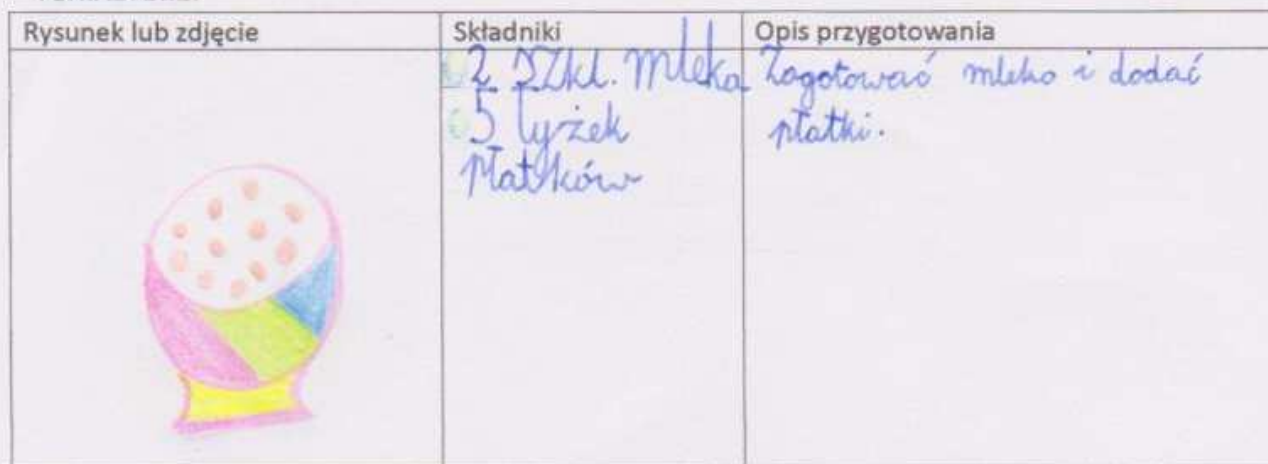 Rysunek lub zdjęcie
Składniki
Opis przygotowania
2 szkl. mleka
5 łyżek
płatków
Zagotować mleko i dodać
płatki.